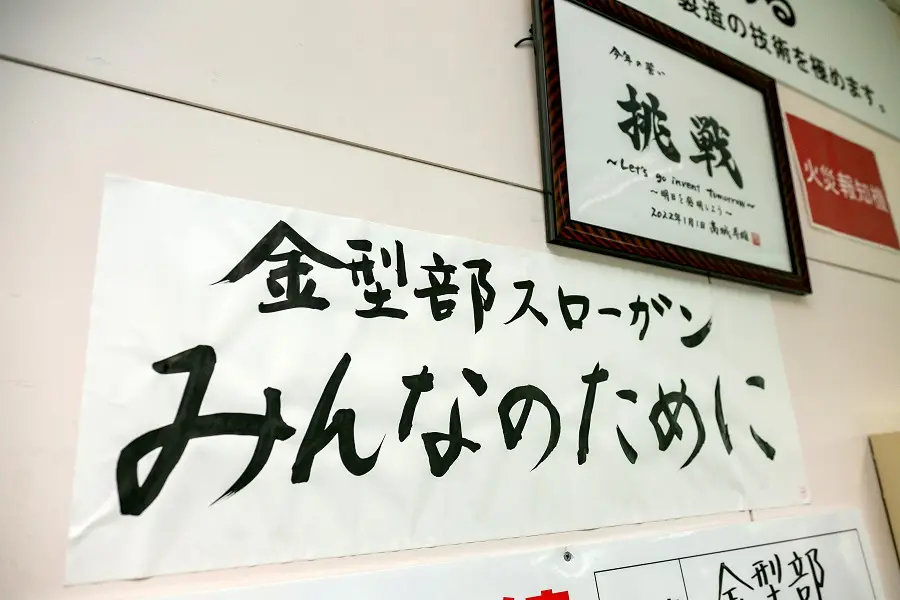 製造の技術を極めます。
今年の誓い
挑戦
~Let's go invent Tomorrow~
~明日を発明しよう~
2022年1月1日
火災報知機
金型部スローガン
みんなのために
金型部